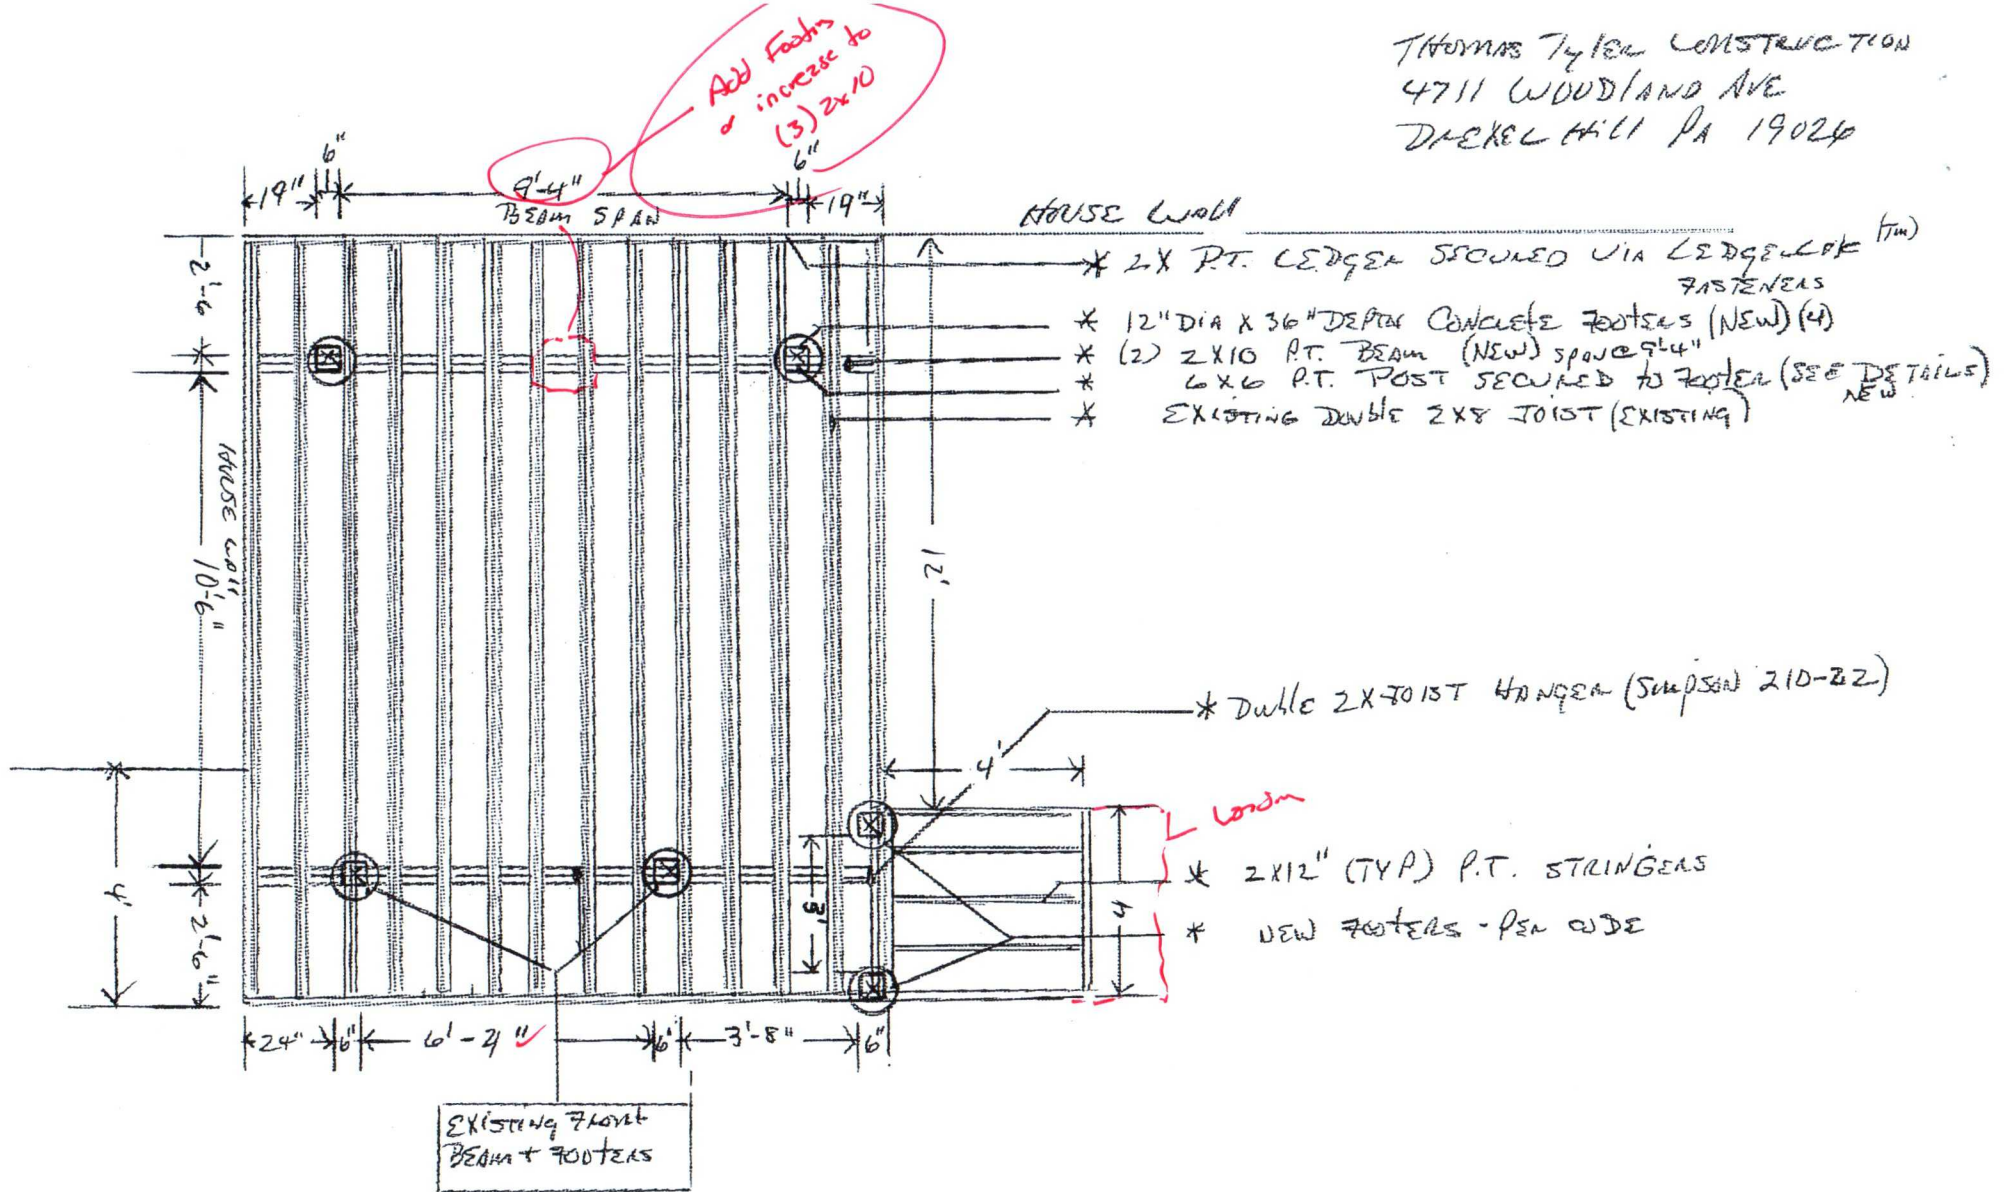 THOMAS TYLER CONSTRUCTION
4711 WOODLAND AVE
DREXEL HILL PA 19026
Add Footing
or increase to
(3) 2x10
6"
6"
19"
9'-4"
19"
BEAM SPAN
HOUSE WALL
2'-6
* 2X P.T. LEDGER SECURED VIA LEDGERLOK (TM)
FASTENERS
* 12" DIA X 36" DEPTH CONCRETE FOOTERS (NEW) (4)
* (2) 2X10 P.T. BEAM (NEW) SPAN @ 9'-4"
* 6X6 P.T. POST SECURED TO FOOTER (SEE DETAILS)
NEW
* EXISTING DOUBLE 2X8 JOIST (EXISTING)
HOUSE WALL
10'-6"
12'
* DUBLE 2X JOIST HANGER (SIMPSON 210-22)
4'
4'
2'-6"
3'
4
* 2X12" (TYP) P.T. STRINGERS
* NEW FOOTERS - PER CODE
24"
6"
6'-4"
6"
3'-8"
6"
EXISTING FRONT
BEAM + FOOTERS